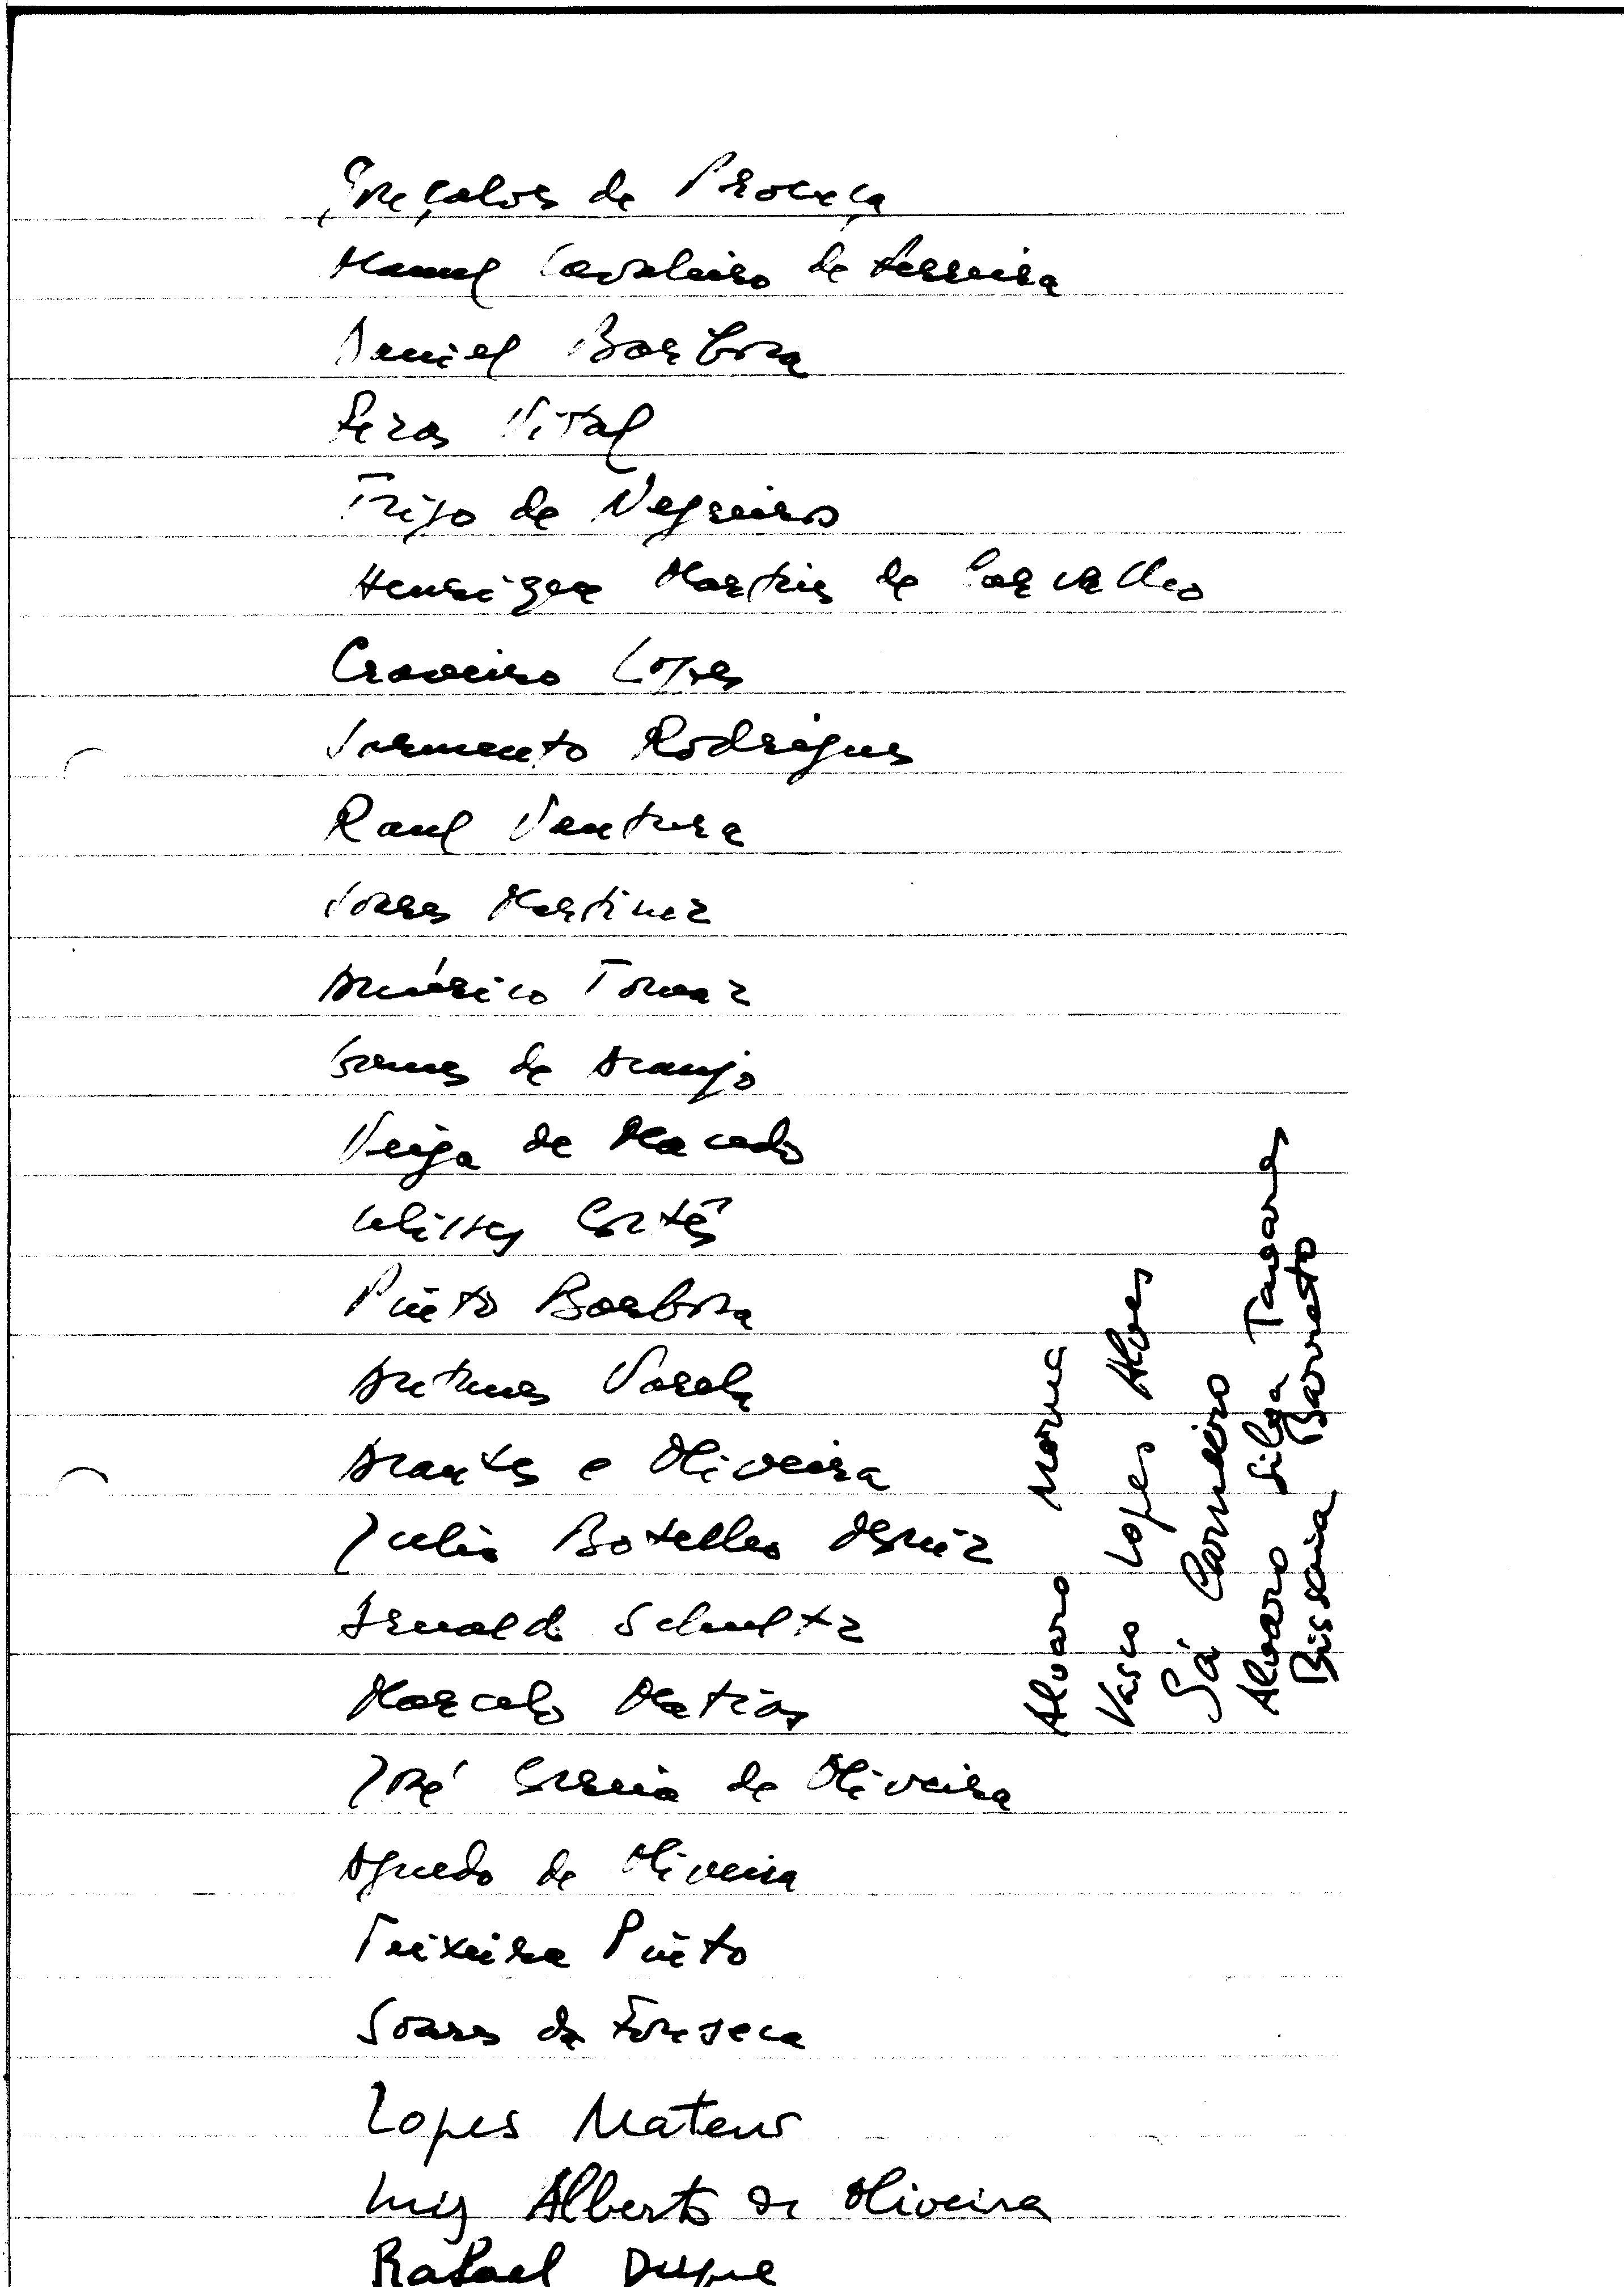 Gonçalves de Proença
Manuel Cavaleiro de Ferreira
Daniel Barbosa
Pezas Vital
Trigo de Negreiros
Henrique Martins de Carvalho
Craveiro Lopes
Sarmento Rodrigues
Raul Ventura
Soares Martinez
Américo Tomaz
Gomes de Araujo
Veiga de Macedo
Ulisses Cortês
Pinto Barbosa
Antunes Varela
Arantes e Oliveira
Julio Botelho Moniz
Arnaldo Schultz
Marcelo Matias
José Correia de Oliveira
Aguedo de Oliveira
Teixeira Pinto
Soares da Fonseca
Lopes Mateus
Luiz Alberto de Oliveira
Rafael Duque
Alvaro Morna
Vasco Lopes Alves
Sá Carneiro
Alvaro Silva Tavares
Bissaia Barreto